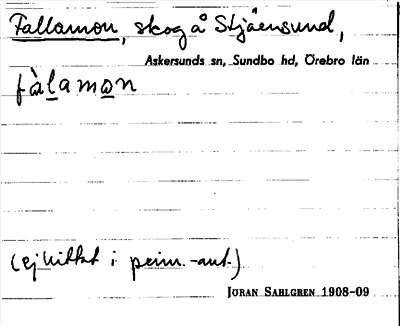 Fallamon, skog å Stjärnsund,
Askersunds sn, Sundbo hd, Örebro län
fàlamon
(ej hittat i prim.-ant.)
JÖRAN SAHLGREN 1908-09